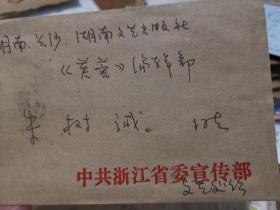 湖南.长沙.湖南文艺出版社
《芙蓉》编辑部
朱树诚
中共浙江省委宣传部
文艺处